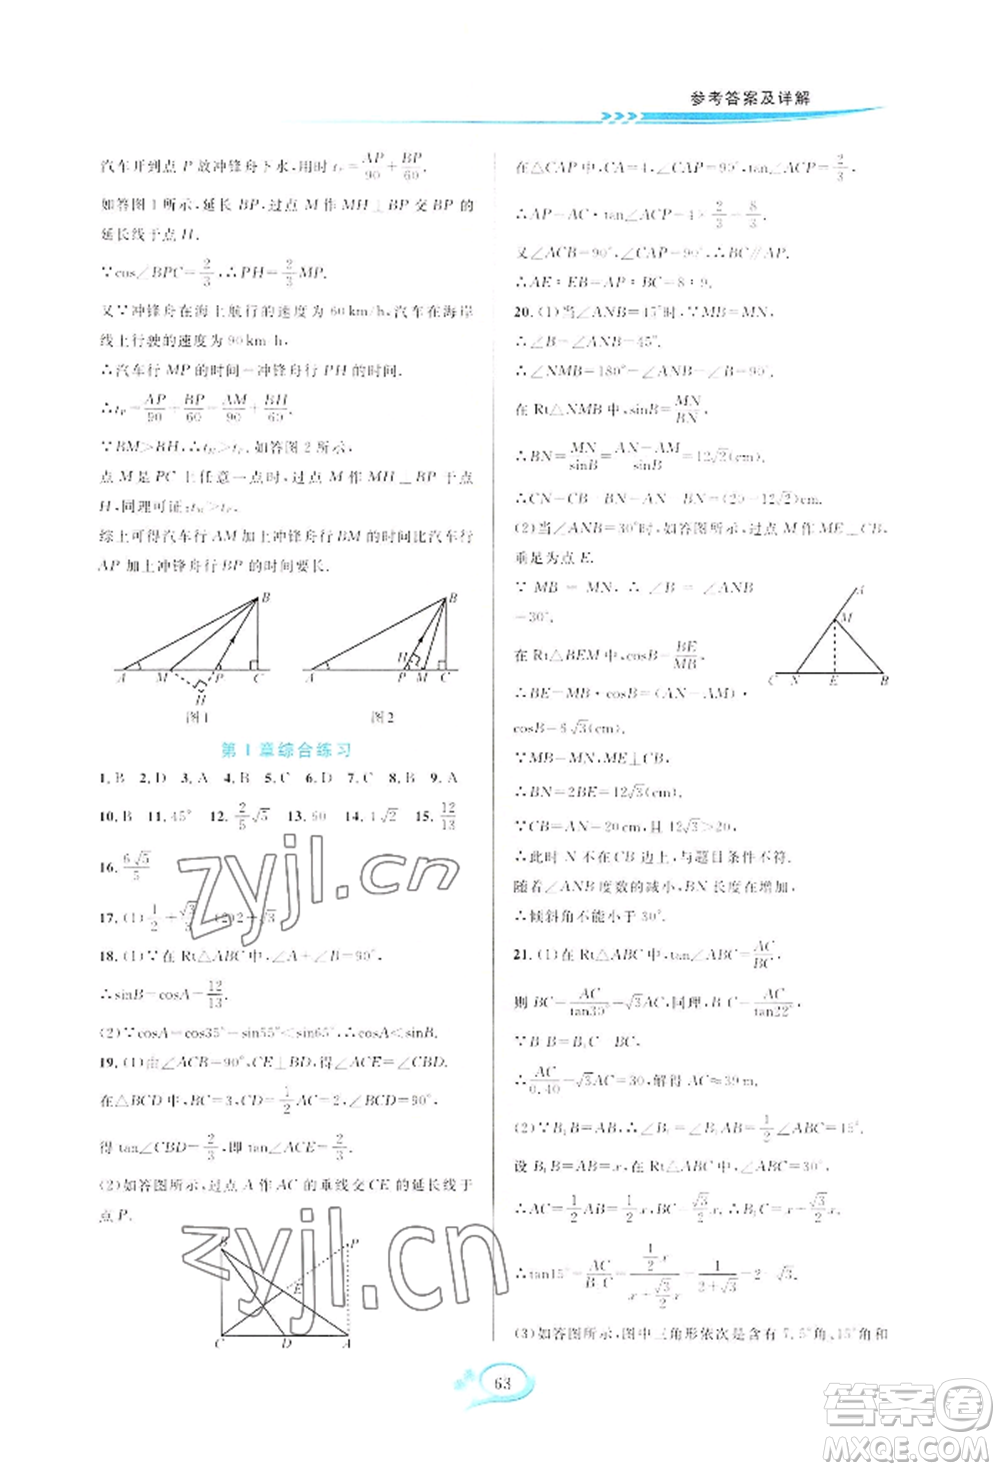 参考答案及详解
汽车开到点 P 放冲锋舟下水,用时 t_P=AP/90+BP/60.
如答图 1 所示,延长 BP,过点 M 作 MH⊥BP 交 BP 的
延长线于点 H.
∵cos∠BPC=2/3,∴PH=2/3MP.
又∵冲锋舟在海上航行的速度为 60 km/h,汽车在海岸
线上行驶的速度为 90 km/h,
∴汽车行 MP 的时间=冲锋舟行 PH 的时间.
∴t_P=AP/90+BP/60=AM/90+BH/60.
∵BM>BH,∴t_M>t_P.如答图 2 所示,
点 M 是 PC 上任意一点时,过点 M 作 MH⊥BP 于点
H,同理可证:t_M>t_P.
综上可得汽车行 AM 加上冲锋舟行 BM 的时间比汽车行
AP 加上冲锋舟行 BP 的时间要长.
A M P C B H
图1
A P M C B H
图2
第 1 章综合练习
1.B 2.D 3.A 4.B 5.C 6.D 7.C 8.B 9.A
10.B 11.45° 12.2/5√5 13.60 14.4√2 15.12/13
16.6√5/5
17.(1)1/2+√3 (2)2+√3
18.(1)∵在 Rt△ABC 中,∠C=90°,
∴sinB=cosA=12/13
(2)∵cosA=cos35°=sin55°<sin65°,∴cosA<sinB.
19.(1)由∠ACB=90°,CE⊥BD,得∠ACE=∠CBD.
在△BCD 中,BC=3,CD=1/2AC=2,∠BCD=90°,
得 tan∠CBD=2/3,即 tan∠ACE=2/3.
(2)如答图所示,过点 A 作 AC 的垂线交 CE 的延长线于
点 P.
B P E C D A
在△CAP 中,CA=4,∠CAP=90°,tan∠ACP=2/3,
∴AP=AC·tan∠ACP=4×2/3=8/3.
又∠ACB=90°,∠CAP=90°,∴BC∥AP.
∴AE:EB=AP:BC=8:9.
20.(1)当∠ANB=45°时,∵MB=MN,
∴∠B=∠ANB=45°.
∴∠NMB=180°-∠ANB-∠B=90°.
在 Rt△NMB 中,sinB=MN/BN,
∴BN=MN/sinB=AN-AM/sinB=12√2(cm).
∴CN=CB-BN=AN-BN=(20-12√2)cm.
(2)当∠ANB=30°时,如答图所示,过点 M 作 ME⊥CB,
垂足为点 E.
∵MB=MN,∴∠B=∠ANB
=30°.
在 Rt△BEM 中,cosB=BE/MB,
∴BE=MB·cosB=(AN-AM)·
cosB=6√3(cm).
∵MB=MN,ME⊥CB,
∴BN=2BE=12√3 cm.
∵CB=AN=20 cm,且 12√3>20,
∴此时 N 不在 CB 边上,与题目条件不符.
随着∠ANB 度数的减小,BN 长度在增加,
∴倾斜角不能小于 30°.
A M C N E B
21.(1)在 Rt△ABC 中,tan∠ABC=AC/BC,
则 BC=AC/tan30°=√3AC,同理,B₁C=AC/tan22°
∵B₁B=B₁C-BC,
∴AC/0.40-√3AC=30,解得 AC≈39 m.
(2)∵B₁B=AB,∴∠B₁=∠B₁AB=1/2∠ABC=15°.
设 B₁B=AB=x,在 Rt△ABC 中,∠ABC=30°,
∴AC=1/2AB=1/2x,BC=√3/2AB=√3/2x.∴B₁C=x+√3/2x.
∴tan15°=AC/B₁C=1/2x/x+√3/2x=1/2+√3=2-√3.
(3)如答图所示,图中三角形依次是含有 7.5°角、15°角和
63
zyjl.cn
zyjl.cn
答案圈
MXQE.COM